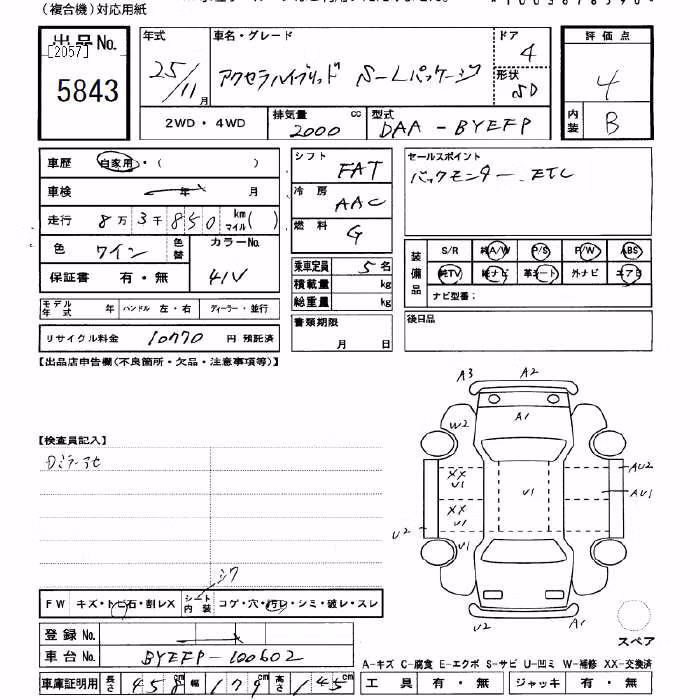 (複合機)対応用紙
出品No.
[2057]
5843
年式
25/11月
車名・グレード
アクセラハイブリッド S-Lパッケージ
ドア
4
形状
SD
評価点
4
内装
B
2WD・4WD
排気量
2000
cc
型式
DAA-BYEFP
車歴
自家用・( )
車検
年 月
走行
8万3千850
km
マイル( )
色
ワイン
色替
カラーNo.
41V
保証書 有・無
モデル年式 年
ハンドル 左・右
ディーラー・並行
リサイクル料金
10770
円 預託済
シフト
FAT
冷房
AAC
燃料
G
乗車定員
5名
積載量
kg
総重量
kg
書類期限
月 日
セールスポイント
バックモニター、ETC
装備品
S/R 純A/W P/S P/W ABS
純TV 純ナビ 革シート 外ナビ エアB
ナビ型番:
後日品
【出品店申告欄(不良箇所・欠品・注意事項等)】
【検査員記入】
A3
A2
A1
W2
XX
U1
XX
U1
U1
U2
U1
AU2
AU1
U2
A1
スペア
シワ
FW
キズ・トビ石・割レX
シート内装
コゲ・穴・汚レ・シミ・破レ・スレ
登録No.
車台No.
BYEFP-100602
A-キズ C-腐食 E-エクボ S-サビ U-凹ミ W-補修 XX-交換済
車庫証明用
長さ
458
幅
179
高さ
145cm
工具 有・無
ジャッキ 有・無